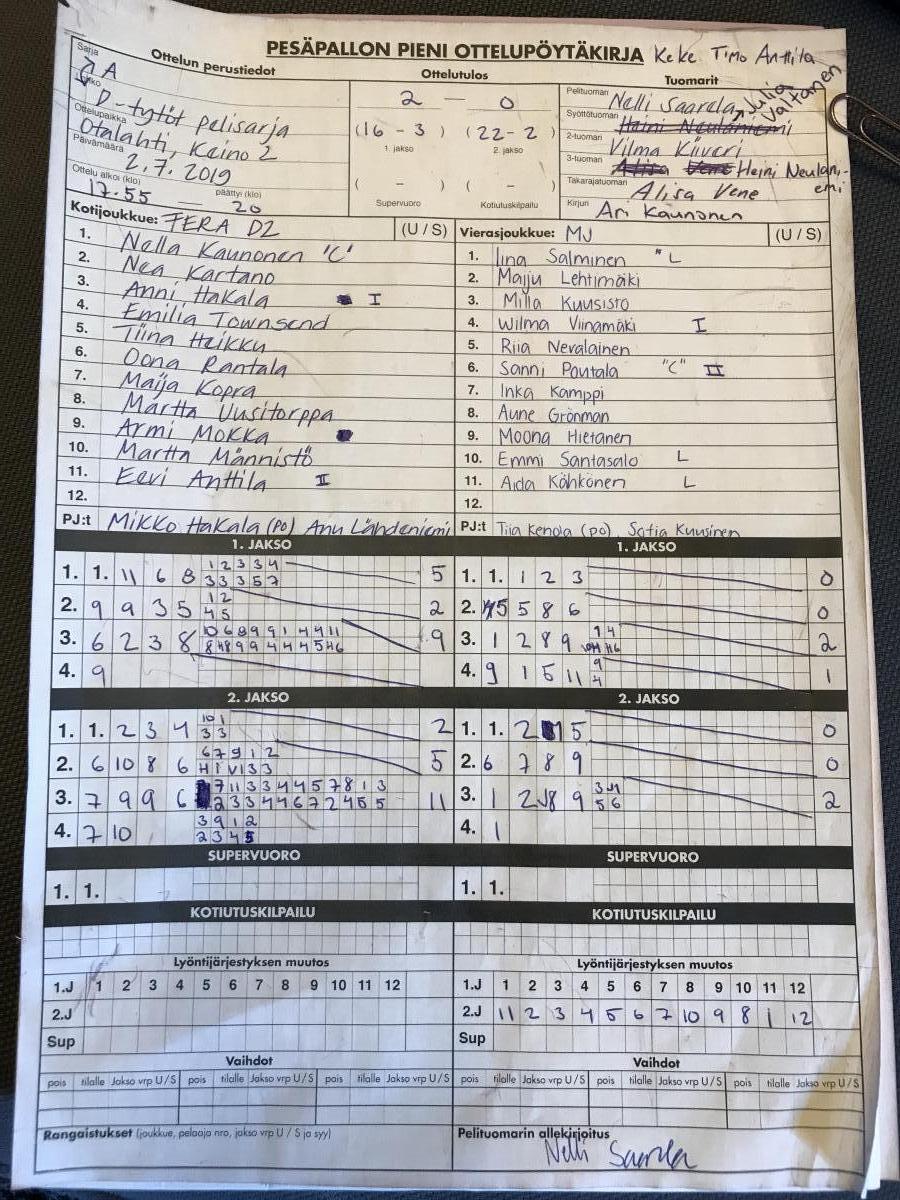 PESÄPALLON PIENI OTTELUPÖYTÄKIRJA Keke Timo Anttila
Sarja Ottelun perustiedot Ottelutulos Tuomarit
A
Lohko
D-tytöt pelisarja
Ottelupaikka
Otalahti, Keino 2
Päivämäärä
2.7.2019
Ottelu alkoi (klo) päättyi (klo)
17.55 — 20
2 — 0
(16 - 3) (22 - 2)
1. jakso 2. jakso
( - ) ( - )
Supervuoro Kotiutuskilpailu
Pelituomari Nelli Saarela
Julia Valtanen
Syöttötuomari Heini Neulaniemi
2-tuomari Vilma Kiiveri
3-tuomari Alisa Vene Heini Neulaniemi
Takarajatuomari Alisa Vene
Kirjuri Ari Kaunonen
Kotijoukkue: FERA D2 (U / S)
1. Nella Kaunonen "C"
2. Nea Kartano
3. Anni Hakala I
4. Emilia Townsend
5. Tiina Heikku
6. Oona Rantala
7. Maija Kopra
8. Martta Uusitorppa
9. Armi Mokka
10. Martta Männistö
11. Eevi Anttila II
12.
PJ:t Mikko Hakala (po) Anu Lähdeniemi
Vierasjoukkue: MJ (U / S)
1. Iina Salminen " L
2. Maiju Lehtimäki
3. Milla Kuusisto
4. Wilma Viinamäki I
5. Riia Nevalainen
6. Sanni Poutala "C" II
7. Inka Kamppi
8. Aune Grönman
9. Moona Hietanen
10. Emmi Santasalo L
11. Aida Kähkönen L
12.
PJ:t Tiia Kenola (po), Satja Kuusinen
1. JAKSO
1. 1. 11 6 8 1 2 3 3 4 5
3 3 3 5 7
2. 9 9 3 5 1 2 2
4 5
3. 6 2 3 8 10 6 8 9 9 1 4 4 11 9
4. 9
1. JAKSO
1. 1. 1 2 3 0
2. 5 5 8 6 0
3. 1 2 8 9 2
4. 9 1 5 11 9 1
4
2. JAKSO
1. 1. 2 3 4 10 1 2
3 3
2. 6 10 8 6 6 7 9 1 2 5
3. 7 9 9 6 7 11 3 3 4 4 5 7 8 1 3 11
2 3 3 4 4 6 7 2 4 5 5
4. 7 10 3 9 1 2
2 3 4 5
2. JAKSO
1. 1. 2 5 0
2. 6 7 8 9 0
3. 1 2 8 9 2
5 6
4. 1
SUPERVUORO
1. 1.
SUPERVUORO
1. 1.
KOTIUTUSKILPAILU
KOTIUTUSKILPAILU
Lyöntijärjestyksen muutos
1.J 1 2 3 4 5 6 7 8 9 10 11 12
2.J
Sup
Lyöntijärjestyksen muutos
1.J 1 2 3 4 5 6 7 8 9 10 11 12
2.J 11 2 3 4 5 6 7 10 9 8 1 12
Sup
Vaihdot
pois tilalle Jakso vrp U / S pois tilalle Jakso vrp U / S pois tilalle Jakso vrp U / S
Vaihdot
pois tilalle Jakso vrp U / S pois tilalle Jakso vrp U / S pois tilalle Jakso vrp U / S
Rangaistukset (joukkue, pelaaja nro, jakso vrp U / S ja syy)
Pelituomarin allekirjoitus
Nelli Saarela